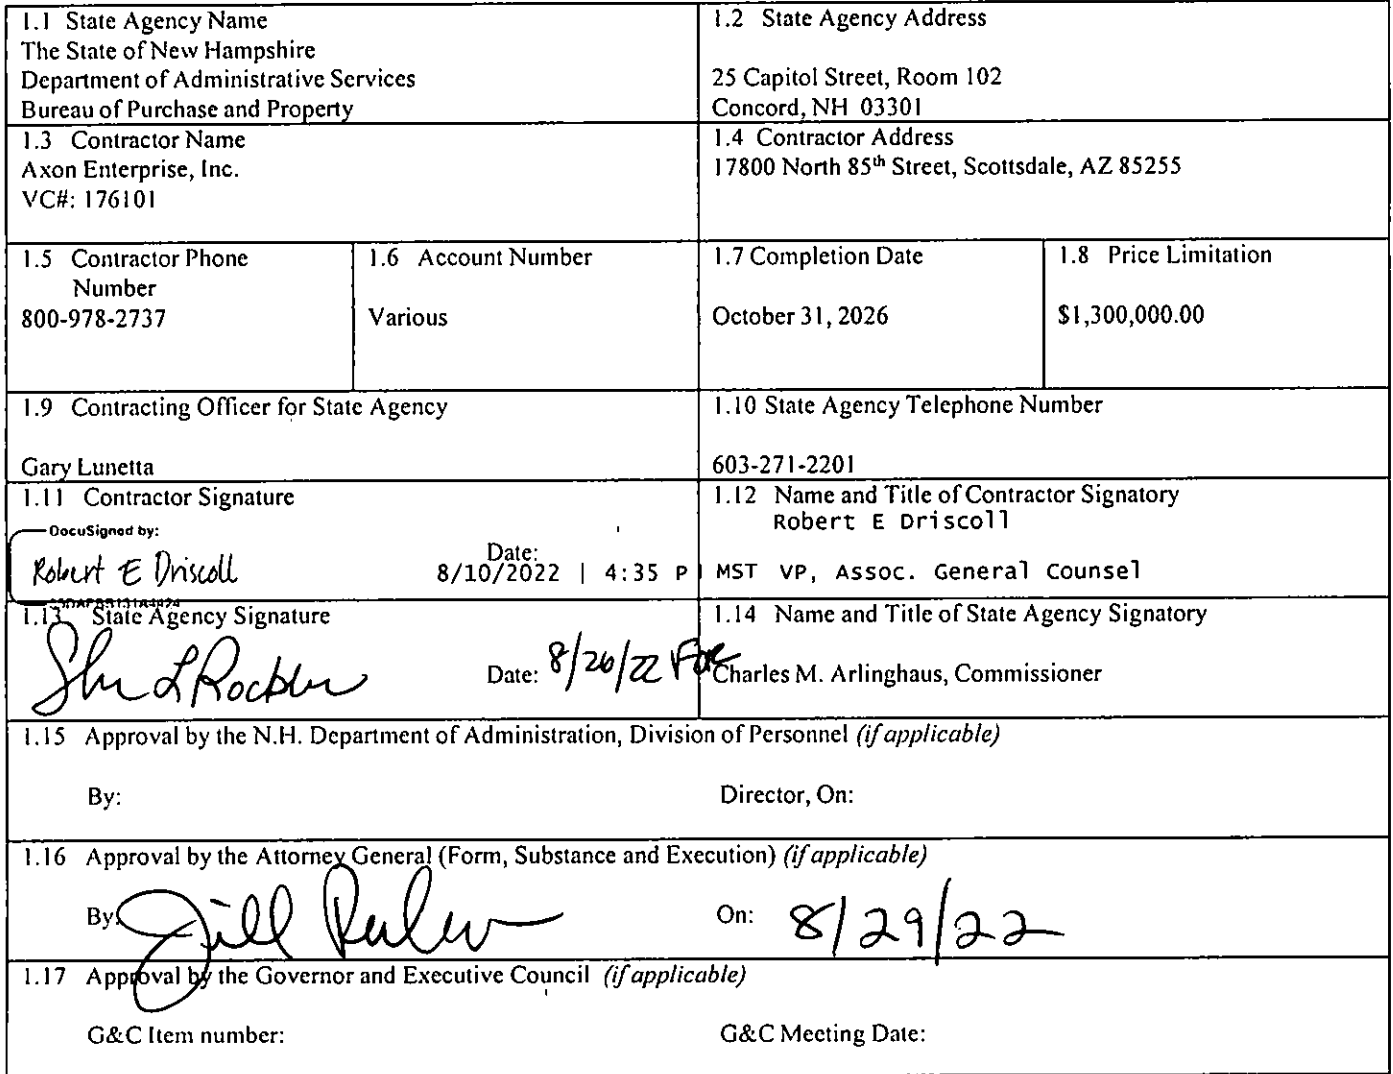 1.1 State Agency Name
The State of New Hampshire
Department of Administrative Services
Bureau of Purchase and Property
1.2 State Agency Address
25 Capitol Street, Room 102
Concord, NH 03301
1.3 Contractor Name
Axon Enterprise, Inc.
VC#: 176101
1.4 Contractor Address
17800 North 85th Street, Scottsdale, AZ 85255
1.5 Contractor Phone
Number
800-978-2737
1.6 Account Number
Various
1.7 Completion Date
October 31, 2026
1.8 Price Limitation
$1,300,000.00
1.9 Contracting Officer for State Agency
Gary Lunetta
1.10 State Agency Telephone Number
603-271-2201
1.11 Contractor Signature
DocuSigned by:
Robert E Driscoll
Date:
8/10/2022 | 4:35 P
1.12 Name and Title of Contractor Signatory
Robert E Driscoll
MST VP, Assoc. General Counsel
1.13 State Agency Signature
Date: 8/26/22 For
1.14 Name and Title of State Agency Signatory
Charles M. Arlinghaus, Commissioner
1.15 Approval by the N.H. Department of Administration, Division of Personnel (if applicable)
By:
Director, On:
1.16 Approval by the Attorney General (Form, Substance and Execution) (if applicable)
By: Jill
On: 8/29/22
1.17 Approval by the Governor and Executive Council (if applicable)
G&C Item number:
G&C Meeting Date: